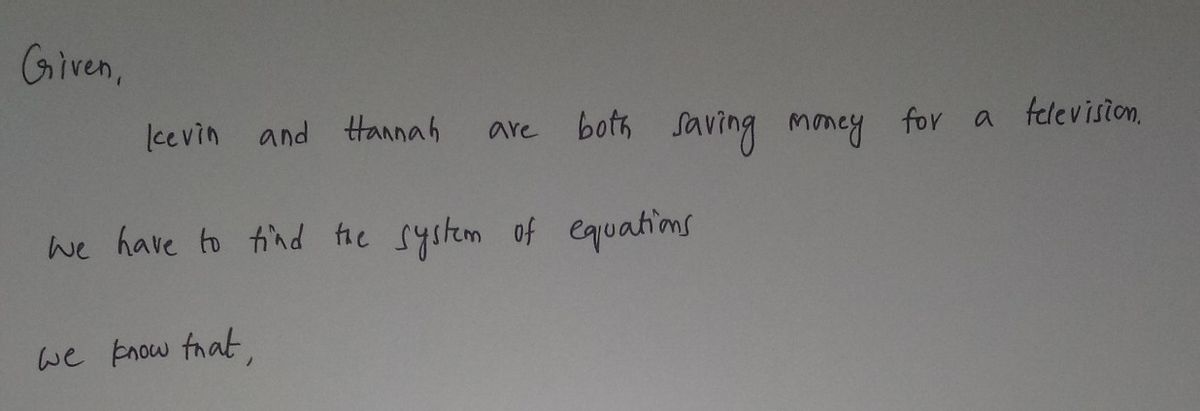 Given,
Kevin and Hannah are both saving money for a television.
we have to find the system of equations
we know that,